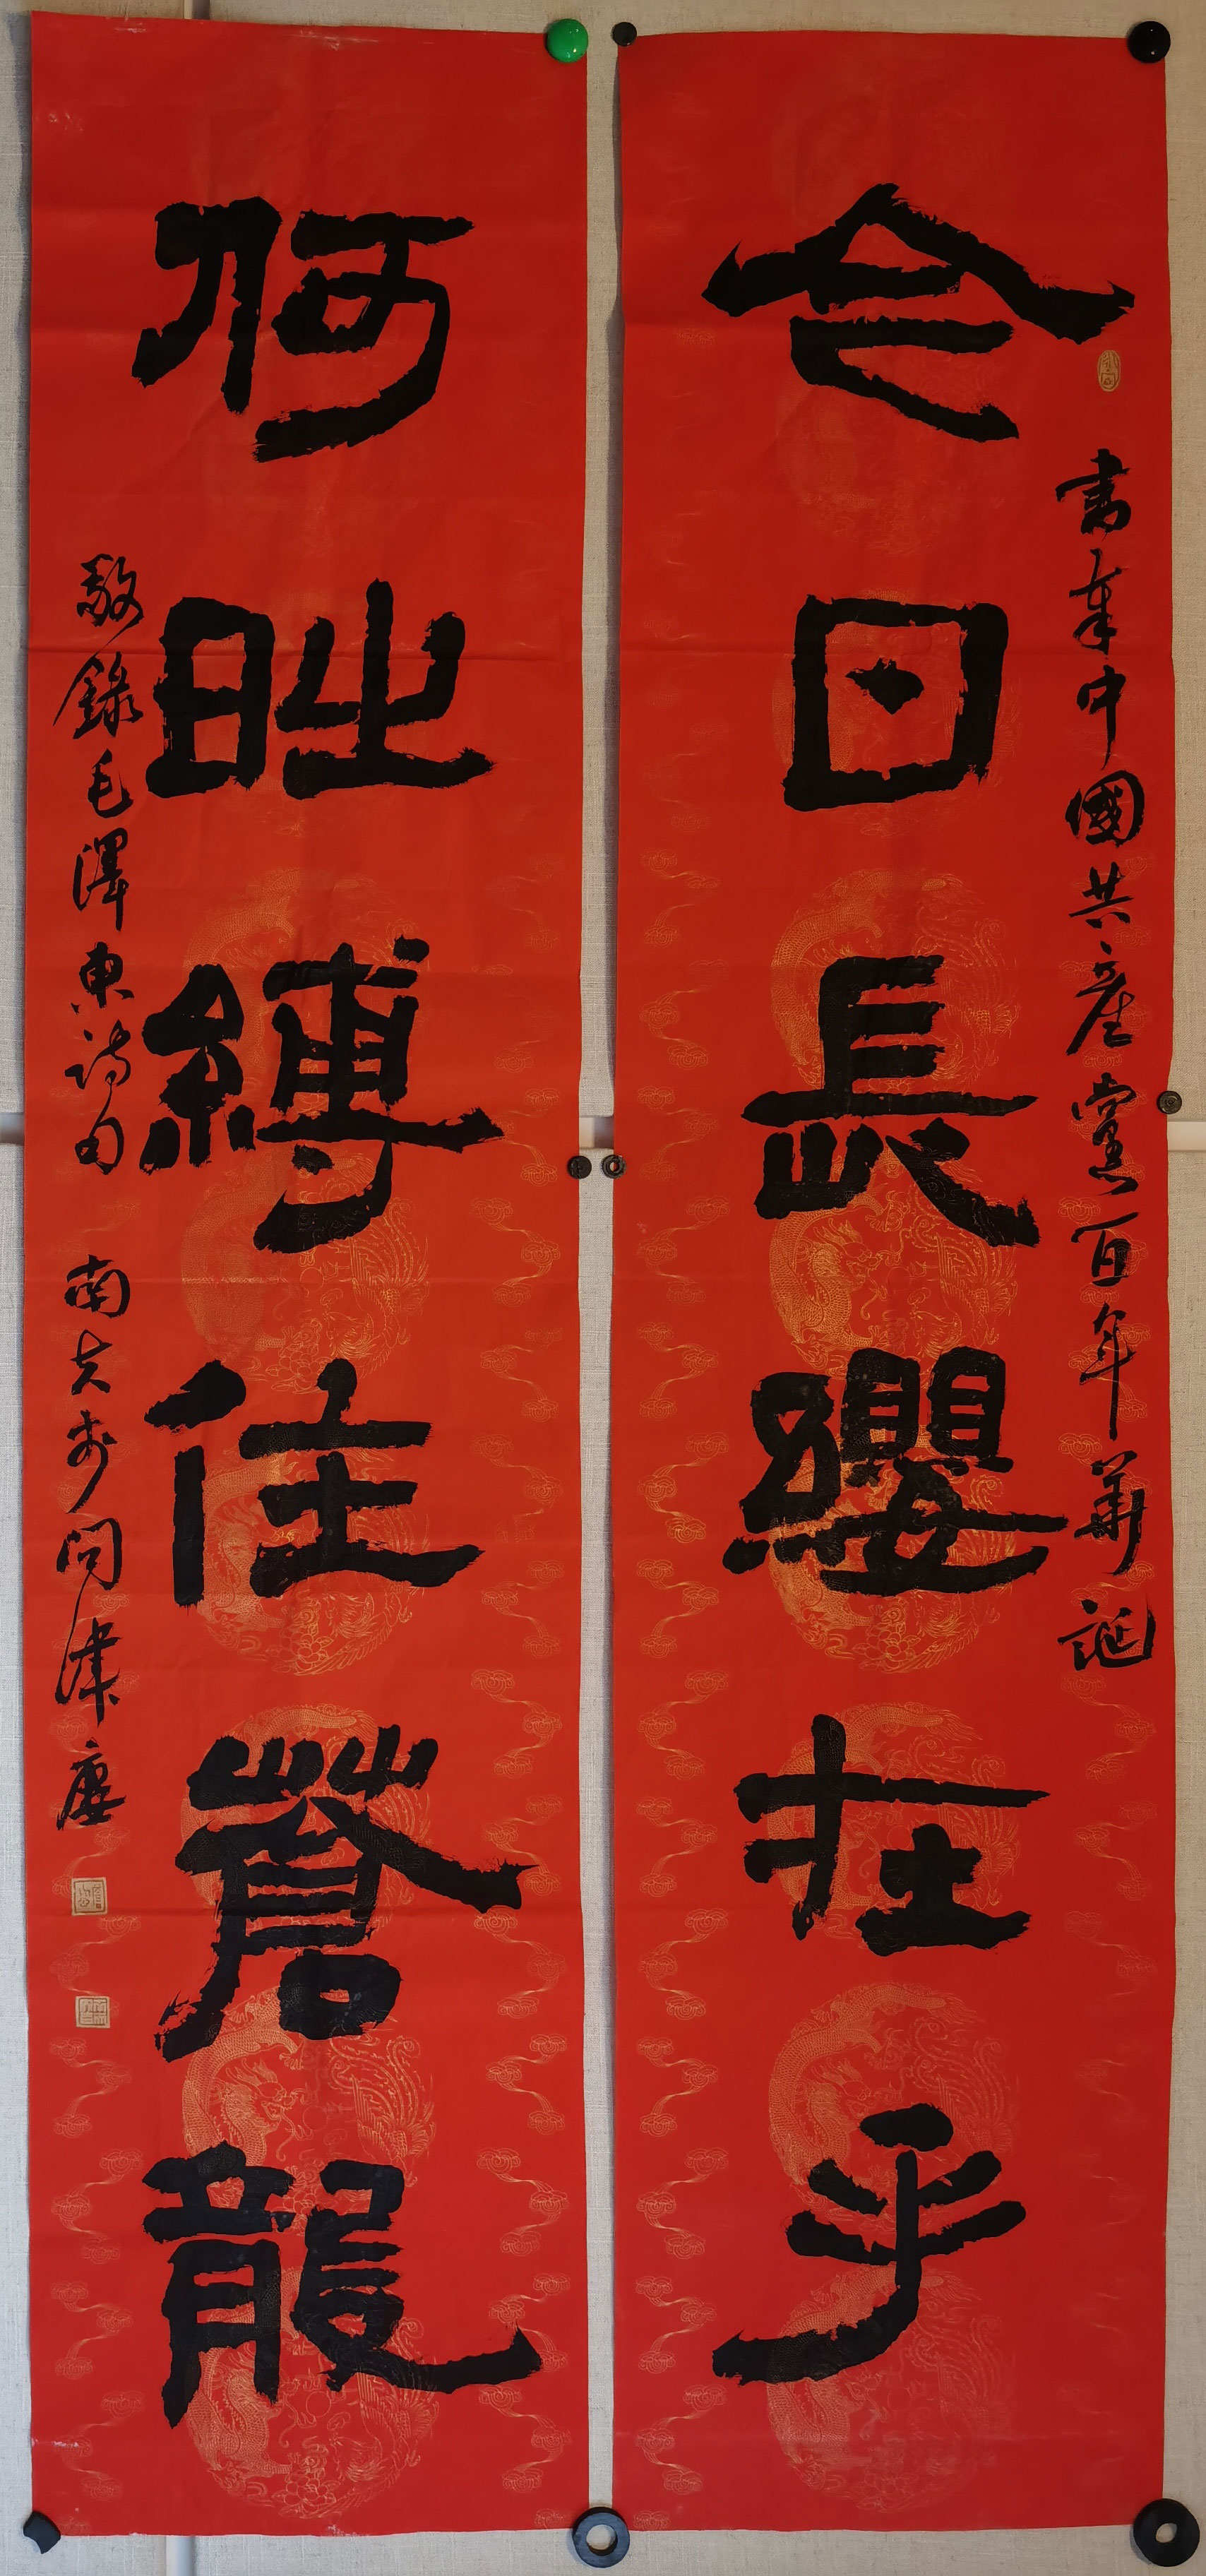 今日長纓在手
書奉中國共產黨百年華誕
何時縛住蒼龍
敬錄毛澤東詩句 南 問津廬